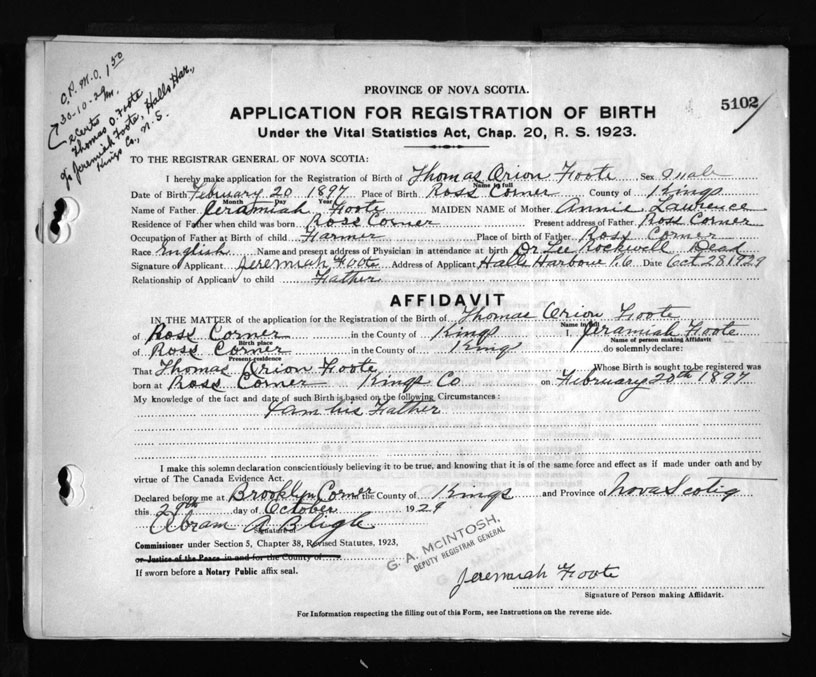 O.P. M.O. 1.50
30-10-29
Certe
Thomas O. Foote
c/o Jeremiah Foote, Halls Har.,
Kings Co., N.S.
PROVINCE OF NOVA SCOTIA.
APPLICATION FOR REGISTRATION OF BIRTH
5102
Under the Vital Statistics Act, Chap. 20, R. S. 1923.
TO THE REGISTRAR GENERAL OF NOVA SCOTIA:
I hereby make application for the Registration of Birth of Thomas Orion Foote Sex Male
Name in full
Date of Birth February 20 1897 Place of Birth Ross Corner County of Kings
Month Day Year
Name of Father Jeramiah Foote MAIDEN NAME of Mother Annie Lawrence
Residence of Father when child was born Ross Corner Present address of Father Ross Corner
Occupation of Father at Birth of child Farmer Place of birth of Father Ross Corner
Race English Name and present address of Physician in attendance at birth Dr. Lee Rockwell Dead
Signature of Applicant Jeremiah Foote Address of Applicant Halls Harbour Date Oct 28 1929
Relationship of Applicant to child Father
AFFIDAVIT
IN THE MATTER of the application for the Registration of the Birth of Thomas Orion Foote
Name in full
of Ross Corner in the County of Kings I, Jeramiah Foote
Birth place Name of person making Affidavit
of Ross Corner in the County of King do solemnly declare:
Present residence
That Thomas Orion Foote Whose Birth is sought to be registered was
born at Ross Corner Kings Co on February 20th 1897
My knowledge of the fact and date of such Birth is based on the following Circumstances:
I am his Father
I make this solemn declaration conscientiously believing it to be true, and knowing that it is of the same force and effect as if made under oath and by
virtue of The Canada Evidence Act.
Declared before me at Brooklyn Corner the County of Kings and Province of Nova Scotia
this 29th day of October 1929
Abram A Bligh
Signature of
Commissioner under Section 5, Chapter 38, Revised Statutes, 1923,
or Justice of the Peace in and for the County of
If sworn before a Notary Public affix seal.
G. A. McINTOSH,
DEPUTY REGISTRAR GENERAL
Jeremiah Foote
Signature of Person making Affidavit.
For Information respecting the filling out of this Form, see Instructions on the reverse side.